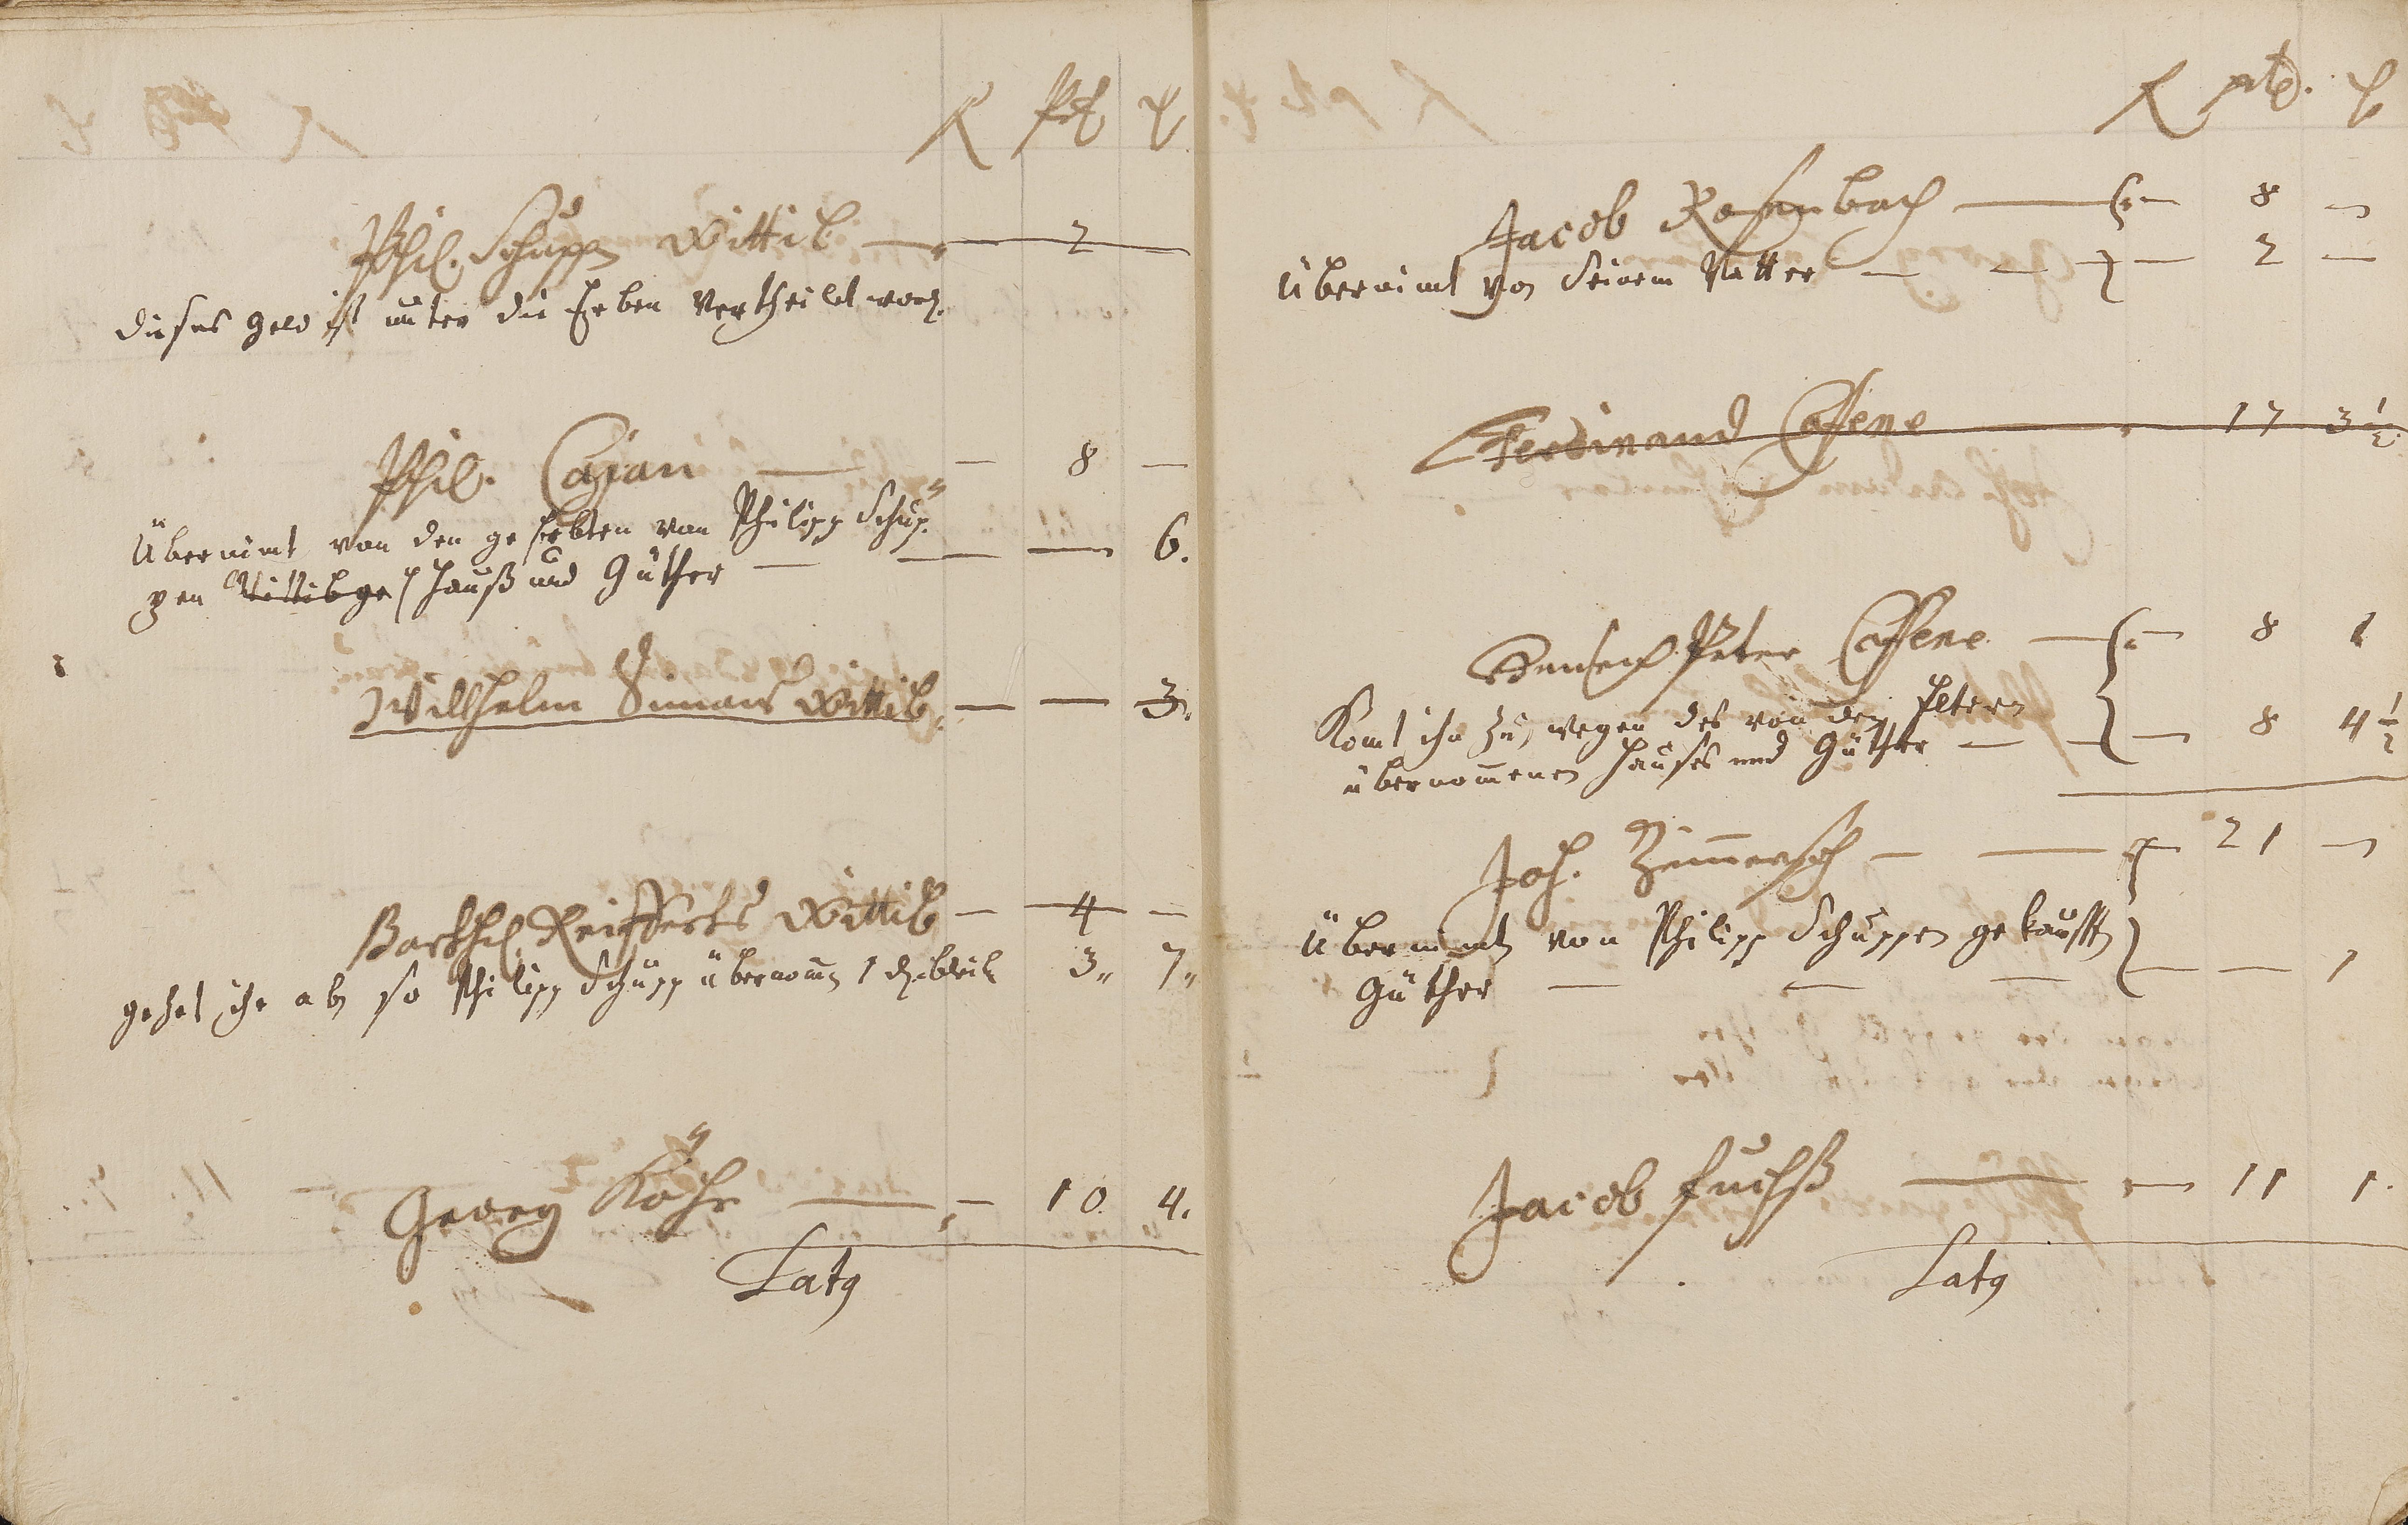 Phil. Schupp Wittib — 2 —
dieses geld ist unter die Erben Vertheilet word.
Phil. Cajan — — 8 —
Übernimt von den geerbten von Philipp Schup-
pen Wittib ge Hauß und Güther — — — 6.
Willhelm Simans Wittib — — 3.
Barthel Reifferts Wittib — 4 —
gehet ihr ab so Philipp Schupp übernomen bleibt 3 7
Georg Köhr — — 10 4.
Latg
Jacob Rosenbach — — 8 —
Übernimt von Seinem Vatter — — — 2 —
Ferdinand Assene 17 3 1/2
Henrich Peter Assene — — 8 1
Komt ihm zu, wegen des von den Eltern
übernommenen Hauses und Güther — — — 8 4 1/2
Joh. Zimmersch — — — 21 —
Übernimt von Philipp Schuppen gekaufft
Güther — — — — — 1
Jacob Fuchß — — 11 1.
Latg